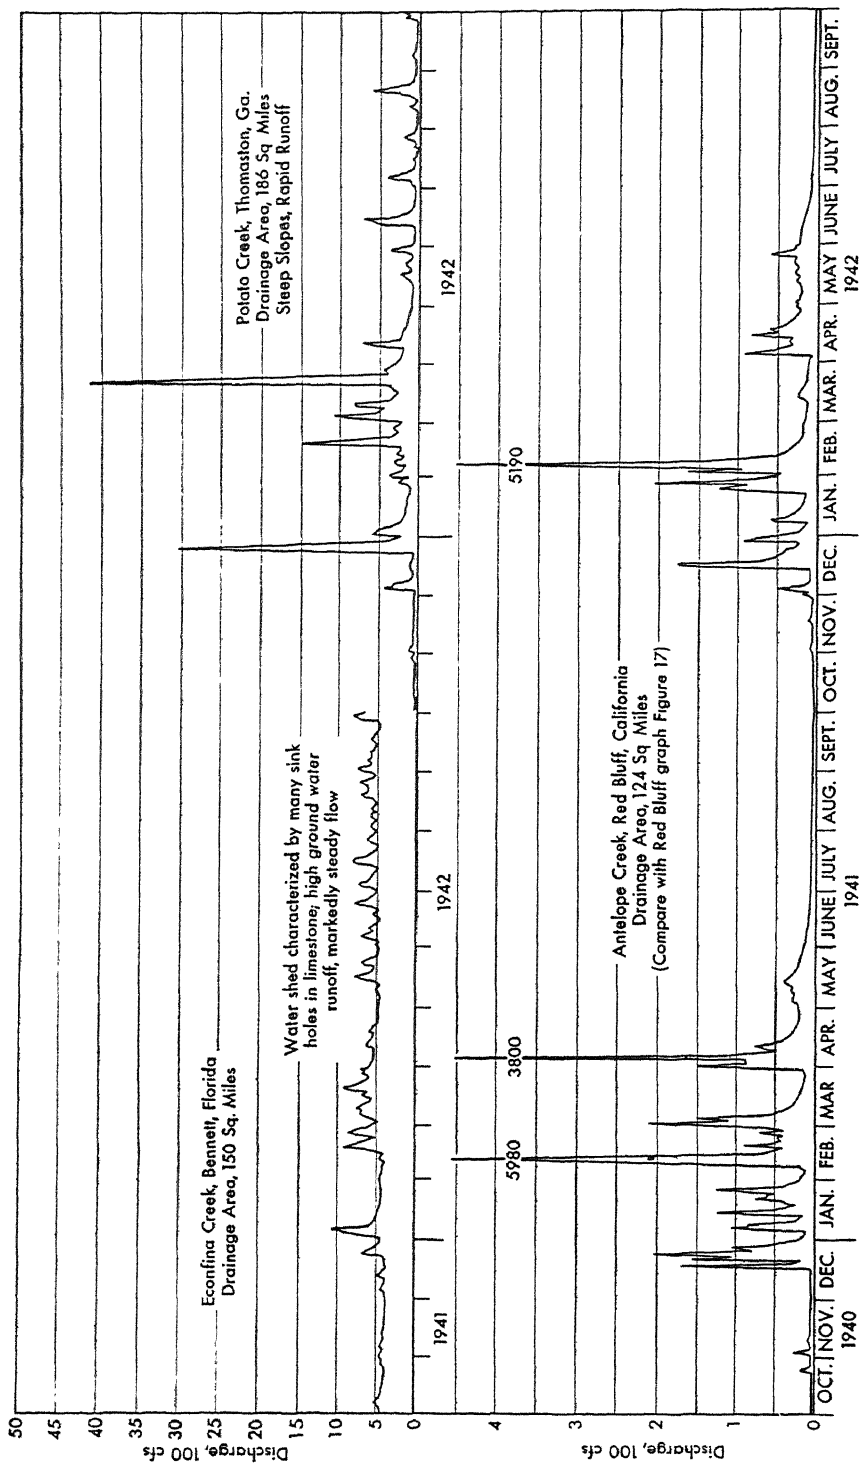 50
45
40
35
30
25
20
15
10
5
0
Discharge, 100 cfs
Econfina Creek, Bennett, Florida
Drainage Area, 150 Sq. Miles
Water shed characterized by many sink
holes in limestone; high ground water
runoff, markedly steady flow
Potato Creek, Thomaston, Ga.
Drainage Area, 186 Sq Miles
Steep Slopes, Rapid Runoff
1941
1942
1942
4
3
2
1
0
Discharge, 100 cfs
5980
3800
5190
Antelope Creek, Red Bluff, California
Drainage Area, 124 Sq Miles
(Compare with Red Bluff graph Figure 17)
OCT. NOV. DEC. JAN. FEB. MAR APR. MAY JUNE JULY AUG. SEPT. OCT. NOV. DEC. JAN. FEB. MAR. APR. MAY JUNE JULY AUG. SEPT.
1940
1941
1942